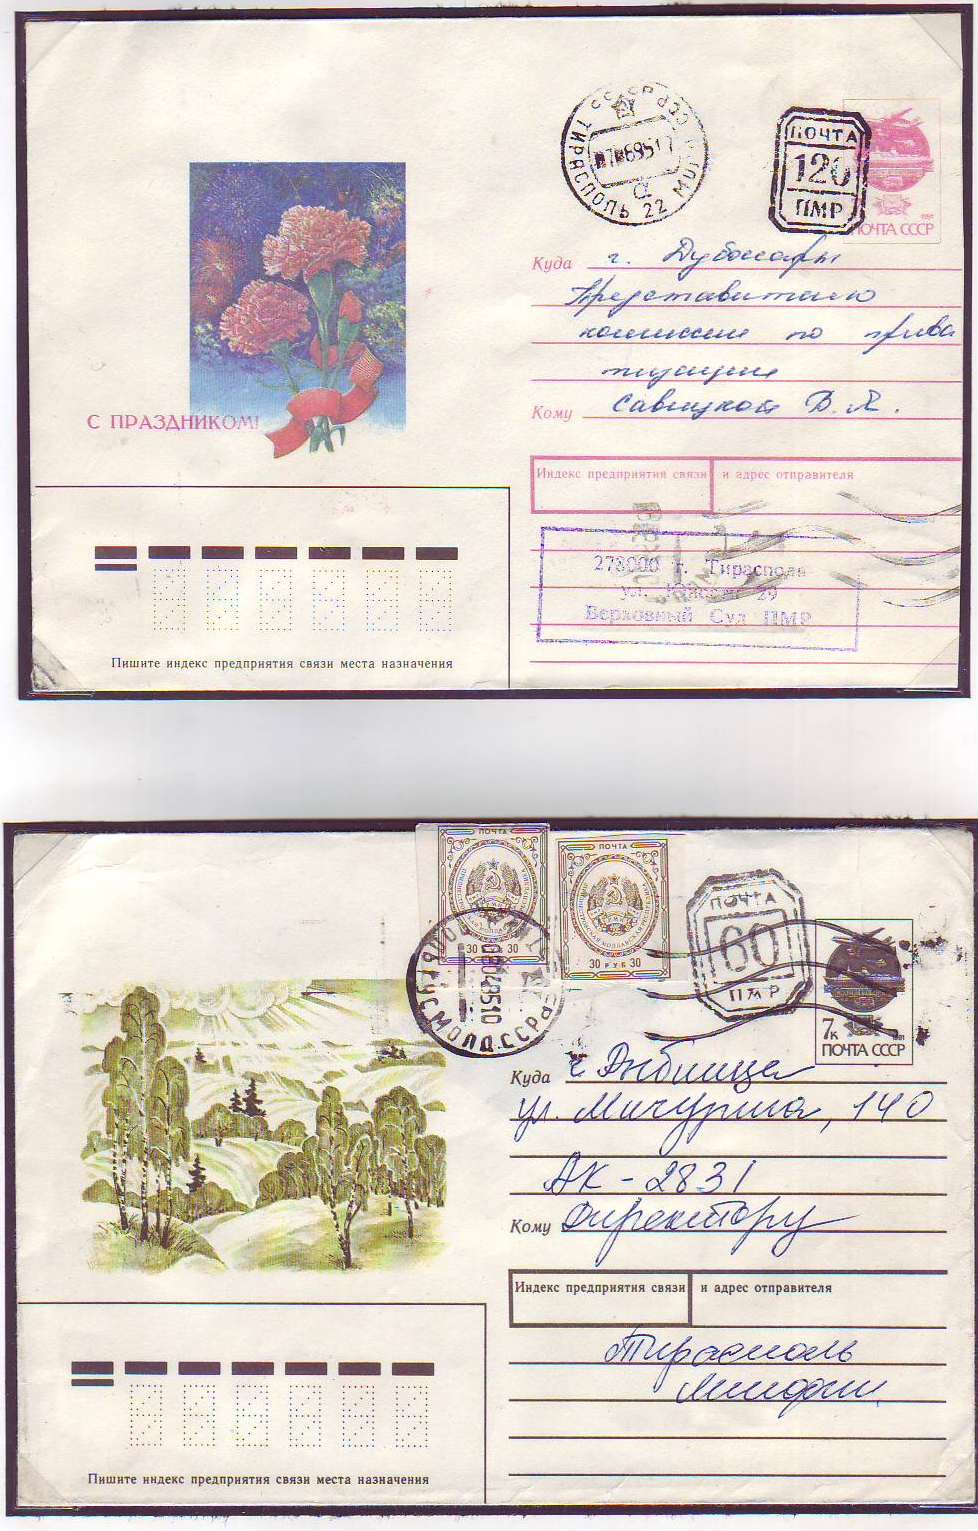 ТИРАСПОЛЬ 22
ПОЧТА
120
ПМР
1991
ПОЧТА СССР
Куда г. Дубоссары
Представителю
комиссии по прива
тизации
Кому Савицкой В. Я.
С ПРАЗДНИКОМ!
Индекс предприятия связи и адрес отправителя
278000 г. Тирасполь
ул. 29
Верховный Суд ПМР
Пишите индекс предприятия связи места назначения
ПОЧТА
30 РУБ 30
ПОЧТА
30 РУБ 30
ПОЧТА
60
ПМР
7к
1991
ПОЧТА СССР
МОЛД.ССР
Куда г. Рыбница
ул. Мичурина, 140
АК-2831
Кому Директору
Индекс предприятия связи и адрес отправителя
Тирасполь
Минфин
Пишите индекс предприятия связи места назначения